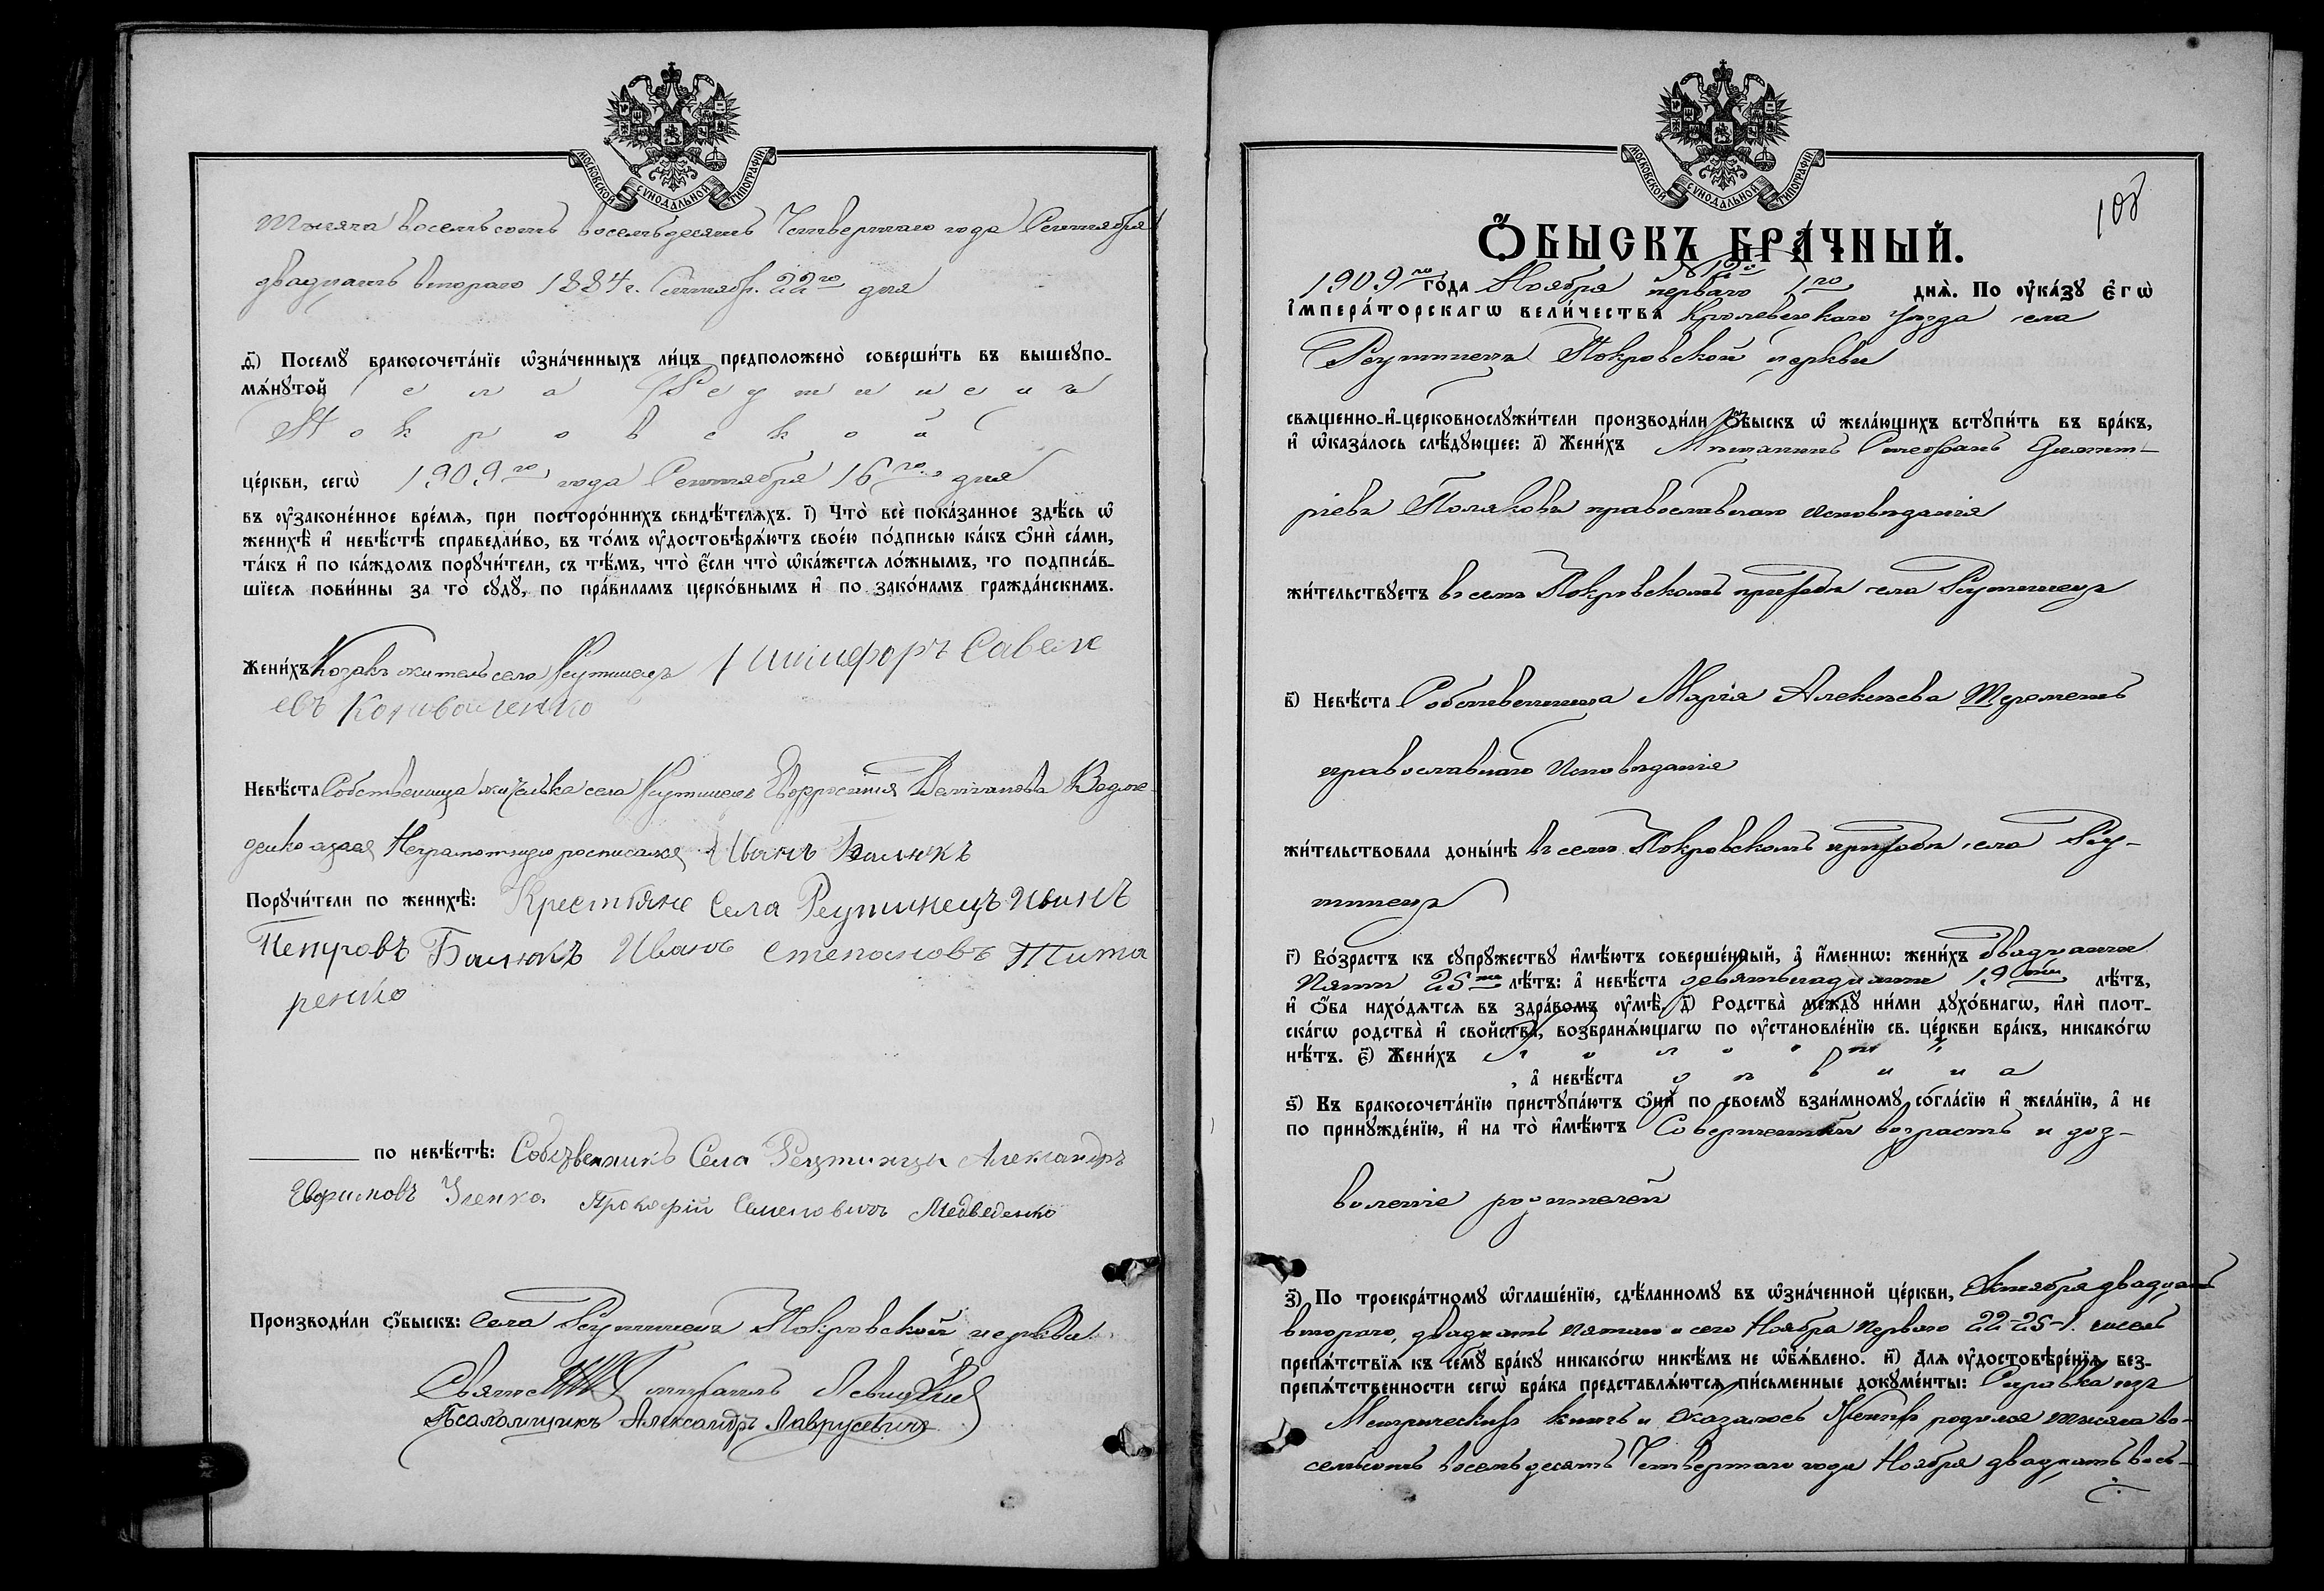 МОСКОВСКОЙ СѴНОДАЛЬНОЙ ТИПОГРАФІИ
тысяча восемьсотъ восемьдесятъ Четвертаго года Сентября
двадцать втораго 1884 г. Сентябр. 22го дня
д҃і) Посемꙋ̀ бракосочета́нїе ѡ҆зна́ченныхъ ли́цъ предположено̀ соверши́ть въ вышеꙋпо-
мѧ́нꙋтой села Реутинецъ
Покровской
це́ркви, сегѡ̀ 1909го года Сентября 16го дня
въ ᲂу҆законе́нное вре́мѧ, при посторо́ннихъ свидѣ́телѧхъ. і҃) Что̀ всѐ пока́занное здѣ́сь ѡ҆
женихѣ̀ и҆ невѣ́стѣ справедли́во, въ то́мъ ᲂу҆достовѣрѧ́ютъ свое́ю по́дписью ка́къ ѻ҆нѝ са́ми,
та́къ и҆ по ка́ждомъ порꙋчи́тели, съ тѣ́мъ, что̀ є҆́сли что̀ ѡ҆ка́жетсѧ ло́жнымъ, то подписа́в-
шїесѧ пови́нны за то̀ сꙋдꙋ̀, по пра́виламъ церко́внымъ и҆ по зако́намъ гражда́нскимъ.
Жени́хъ Козакъ житель села Реутинецъ Никифоръ Савель
евъ Коноваленко
Невѣ́ста Собственица жителька села Реутинецъ Евфросинія
Неграмотную росписался Иванъ Балюкъ
Порꙋчи́тели по женихѣ̀: Крестьяне Села Реутинецъ Иванъ
Петровъ Балюкъ Иванъ Степановъ Тита
ренко
по невѣ́стѣ: Собственникъ Села Реутинцы Александръ
Евфимовъ Зленко. Прокофій Семеновичъ Медведенко
Производи́ли ѻ҆́быскъ: Села Реутинецъ Покровской церкви
Свящ. Михаилъ Левицкій
Псаломщикъ Александръ Лаврусевичъ
МОСКОВСКОЙ СѴНОДАЛЬНОЙ ТИПОГРАФІИ
108
Ѻ҆БЫСКЪ БРА́ЧНЫЙ.
№ 12й
1909го го́да Ноября перваго 1го днѧ̀. По ᲂу҆ка́зꙋ Є҆гѡ̀
І҆мпера́торскагѡ вели́чества Кролевецкаго уѣзда села
Реутинецъ Покровской церкви
свѧщенно-и҆-церковнослꙋжи́тели производи́ли ѻ҆́быскъ ѡ҆ жела́ющихъ встꙋпи́ть въ бра́къ,
и҆ ѡ҆каза́лось слѣ́дꙋющее: а҃) Жени́хъ Мѣщанинъ Стефанъ Димит-
ріевъ Поляковъ православнаго исповѣданія
жи́тельствꙋетъ въ семъ Покровскомъ приходѣ села Реутинецъ
в҃) Невѣ́ста Собственница Марія Алексѣева Шереметъ
православнаго Исповѣданія
жи́тельствовала доны́нѣ въ семъ Покровскомъ приходѣ села Реу-
тинецъ
г҃) Во́зрастъ къ сꙋпрꙋ́жествꙋ и҆мѣ́ютъ соверше́нный, а҆ и҆́меннѡ: жени́хъ двадцати
Пяти 25ти лѣ́тъ: а҆ невѣ́ста девятьнадцати 19ти лѣ́тъ,
и҆ ѻ҆́ба нахо́дѧтсѧ въ здра́вомъ ᲂу҆мѣ̀. д҃) Родства̀ междꙋ̀ ни́ми дꙋхо́внагѡ, и҆лѝ плот-
ска́гѡ родства̀ и҆ свойства̀, возбранѧ́ющагѡ по ᲂу҆становле́нїю св. це́ркви бра́къ, никако́гѡ
нѣ́тъ. є҃) Жени́хъ холостъ
, а҆ невѣ́ста дѣвица
ѕ҃) Къ бракосочета́нїю пристꙋпа́ютъ ѻ҆нѝ по своемꙋ̀ взаи́мномꙋ согла́сїю и҆ жела́нїю, а҆ не
по принꙋжде́нїю, и҆ на то̀ и҆мѣ́ютъ Совершенный возрастъ и доз-
воленіе родителей
з҃) По троекра́тномꙋ ѡ҆глаше́нїю, сдѣ́ланномꙋ въ ѡ҆зна́ченной це́ркви, Октября двадцать
втораго, двадцать пятаго и сего Ноября перваго 22-25-1. чиселъ
препѧ́тствїѧ къ семꙋ̀ бра́кꙋ никако́гѡ никѣ́мъ не ѡ҆б̾ѧ́влено. и҃) Длѧ ᲂу҆достовѣре́нїѧ без-
препѧ́тственности сегѡ̀ бра́ка представлѧ́ютсѧ пи́сьменные докꙋме́нты: Справка изъ
Метрическихъ книгъ и оказалось Женихъ родился тысяча во-
семьсотъ восемьдесятъ Четвертаго года Ноября двадцать вось-